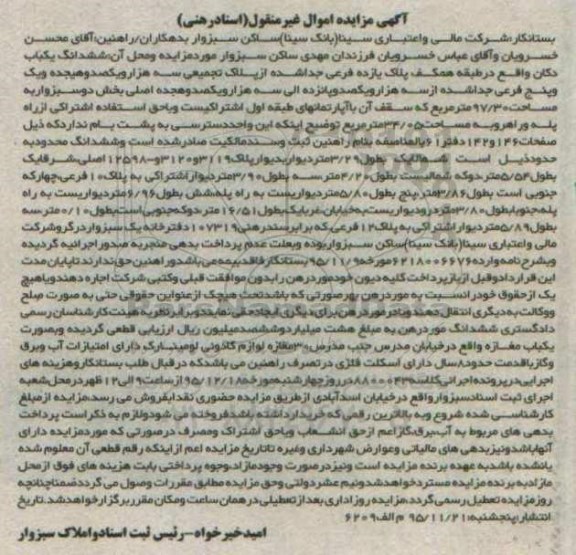 آگهی مزایده اموال غیر منقول(اسناد رهنی)
بستانکار:شرکت مالی واعتباری سینا(بانک سینا)ساکن سبزوار بدهکاران/راهنین:آقای محسن
خسرویان وآقای عباس خسرویان فرزندان مهدی ساکن سبزوار موردمزایده ومحل آن:ششدانگ یکباب
دکان واقع درطبقه همکف پلاک یازده فرعی جداشده ازپلاک تجمیعی سه هزارویکصدوهیجده ویک
وپنج فرعی جداشده ازسه هزارویکصدوپانزده الی سه هزارویکصدوهجده اصلی بخش دوسبزواربه
مساحت۹۷/۳۰مترمربع که سقف آن باآپارتمانهای طبقه اول اشتراکیست وباحق استفاده اشتراکی ازراه
پله وراهروبه مساحت۳۴/۰۵مترمربع توضیح اینکه این واحددسترسی به پشت بام نداردکه ذیل
صفحات۱۴۶و۱۴۲دفتر۶۱بالمناصفه بنام راهنین ثبت وسندمالکیت صادرشده است وششدانگ محدوبه
حدودذیل است شمالایک بطول۳/۲۹متردیواربدیوارپلاک۳۱۱۹و۳۱۲۰و۱۲۵۹۸-اصلی،شرقایک
بطول۵/۵۴متردوکه شمالیست بطول۴/۲۰مترسه بطول۳/۹۰متردیواراشتراکی به پلاک۱۰فرعی،چهارکه
جنوبی است بطول۳/۸۶متر،پنج بطول۵/۸۰متردیواریست به راه پله،شش بطول۶/۹۶متردیواریست به راه
پله،جنوبابطول۳/۸۰متردرودیواریست به خیابان،غربایک بطول۱۶/۵۱متر،دوکه جنوبی است بطول۰/۱۰متر،سه
بطول۵/۸۹متردیواراشتراکی به پلاک۱۲فرعی،که برابرسندرهنی۱۰۷۳۱۹دفترخانه یک سبزواردرگروشرکت
مالی واعتباری سینا(بانک سینا)ساکن سبزواربوده وبعلت عدم پرداخت بدهی منجربه صدوراجرائیه گردیده
وبشرح نامه وارده۶۲۱۸۰۰۶۶۷۶مورخه۹۵/۱۱/۹بستانکارفاقدبیمه می باشدوراهنین حق ندارندتاپایان مدت
این قراردادوقبل ازبازپرداخت کلیه دیون خودموردرهن رابدون موافقت قبلی وکتبی شرکت اجاره دهندویاهیچ
یک ازحقوق خودرانسبت به موردرهن بهرصورتی که باشدتحت هیچک ازعناوین حقوقی حتی به صورت صلح
ووکالت به دیگری انتقال دهندویادرموردرهن برای دیگری ایجادحقی نمایندوبرابرنظریه هیئت کارشناسان رسمی
دادگستری ششدانگ موردرهن به مبلغ هشت میلیاردوششصدمیلیون ریال ارزیابی قطعی گردیده وبصورت
یکباب مغازه واقع درخیابان مدرس جنب مدرس۳۰مغازه لوازم کادوئی لومینارک دارای امتیازات آب وبرق
وگازباقدمت حدود۸سال دارای اسکلت فلزی درتصرف راهنین می باشدکه درقبال طلب بستانکاروهزینه های
اجرایی درپرونده اجرائی کلاسه۸۸۰۰۰۴۳درروزچهارشنبه مورخه۹۵/۱۲/۱۸ازساعت۹الی۱۲ظهردرمحل شعبه
اجرای ثبت اسنادسبزوارواقع درخیابان اسدآبادی ازطریق مزایده حضوری نقدابفروش می رسد،مزایده ازمبلغ
کارشناسی شده شروع وبه بالاترین رقمی که خریدارداشته باشدفروخته می شودولازم به ذکراست پرداخت
بدهی های مربوط به آب،برق،گازاعم ازحق انشعاب ویاحق اشتراک ومصرف درصورتی که موردمزایده دارای
آنهاباشدونیزبدهی های مالیاتی وعوارض شهرداری وغیره تاتاریخ مزایده اعم ازاینکه رقم قطعی آن معلوم شده
یانشده باشدبه عهده برنده مزایده است ونیزدرصورت وجودمازاد،وجوه پرداختی بابت هزینه های فوق ازمحل
مازادبه برنده مزایده مستردخواهدشدونیم عشردولتی وحق مزایده مطابق مقررات وصول می گرددضمناچنانچه
روزمزایده تعطیل رسمی گردد،مزایده روزاداری بعدازتعطیلی درهمان ساعت ومکان مقرربرگزارخواهدشد.تاریخ
انتشار:پنجشنبه:۹۵/۱۱/۲۱ م الف۶۲۰۹
امید خیر خواه-رئیس ثبت اسناد واملاک سبزوار